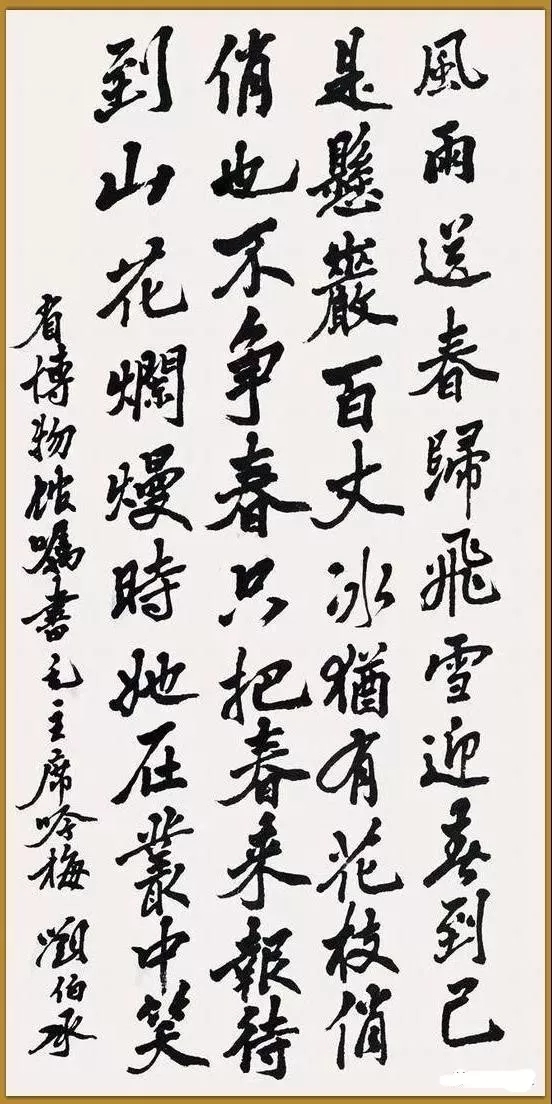 風雨送春歸飛雪迎春到已
是懸巖百丈冰猶有花枝俏
俏也不争春只把春来報待
到山花爛熳時她在叢中笑
省博物館嘱書毛主席咏梅 劉伯承